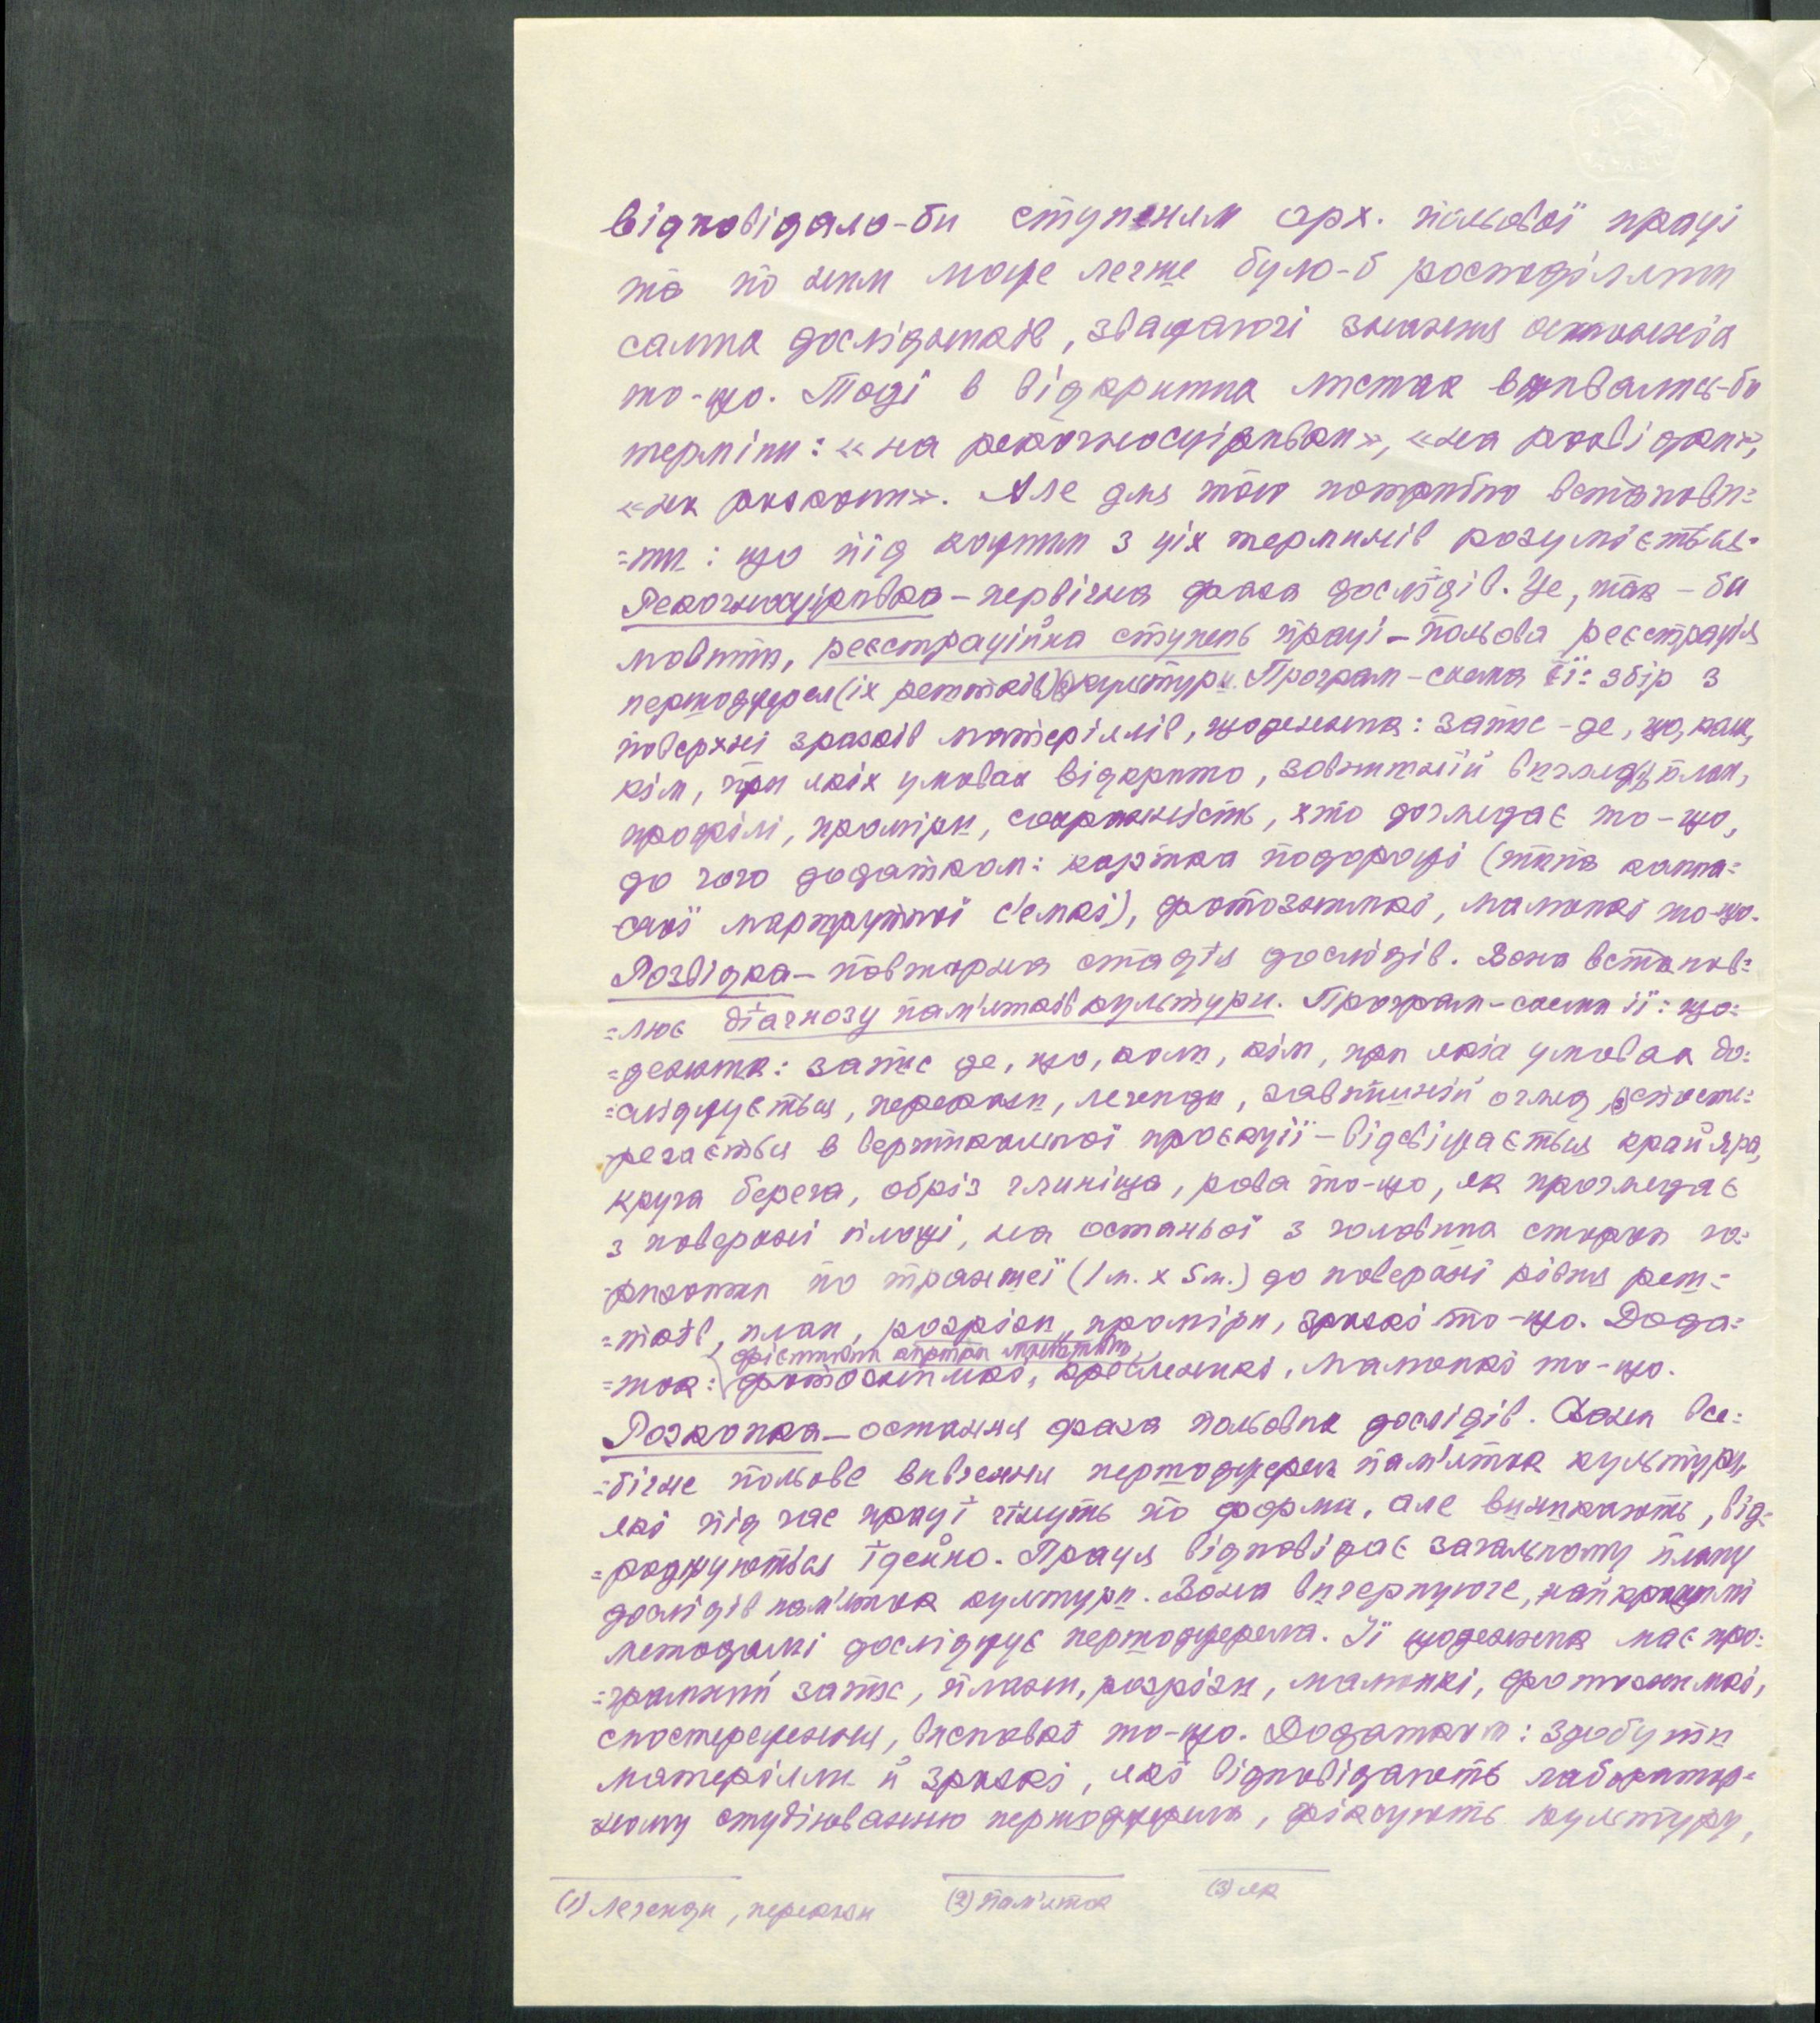 відповідало-би ступеням арх. польової праці
та по ним може легше було-б росподіляти
самих дослідників, зважаючі знання останніх
то-що. Тоді в відкритих листах вживались-би
терміни: «на рекогносціровки», «на розвідки»,
«на розкопи». Але для того потрібно встанови=
=ти: що під кожним з ціх термінів розуміється.
Рекогносціровка – первічна фаза дослідів. Це, так – би
мовити, реєстраційна ступень праці – польова реєстрація
першоджерел (іх решток) (2) культури. Програм – схема її: збір з
поверхні зразків матеріялів, щоденник: запис – де, що, коли,
кім, при якіх умовах відкрито, зовнішній вигляд, (1) план,
профілі, проміри, схоронність, хто доглядає то-що,
до чого додатком: картка подорожі (типа компа=
сної маршрутної с'емкі), фотознимкі, малюнкі то-що.
Розвідка – повторна стадія дослідів. Вона встанов=
=лює діагнозу пам'яток культури. Програм-схема її: що=
=денник: запис де, що, коли, кім, при якіх умовах до=
=сліджується, перекази, легенди, зовнішній огляд, (3) спосте=
регається в вертикальної проєкції – відсвіщається край яра,
круча берега, обріз глиніща, рова то-що, як проглядає
з поверхні площі, на останьої з головних сторон го=
ризонта по траншеї (1 м. х 5 м.) до поверхні рівня реш=
=ток, план, розрізи, проміри, зразкі то-що. Дода=
=ток: фотознимкі, кресленикі, малюнкі то-що.
Розкопка – остання фаза польових дослідів. Вона все=
=бічне польове вивчення першоджерел пам'яток культури,
які під час праці гінуть по форми, але виникають, від=
=роджуються ідейно. Праця відповідає загальному плану
дослідів пам'яток культури. Вона вичерпуюче, найкращимі
методамі досліджує першоджерела. Її щоденник має про=
=грамний запис, плани, розрізи, малюнкі, фотознимкі,
спостереження, висновкі то-що. Додатком: здобути
матеріяли й зразкі, які відповідають лаборатор=
ному студіюванню першоджерела, фіксують культуру,
(1) Легенди, перекази (2) пам'яток (3) як